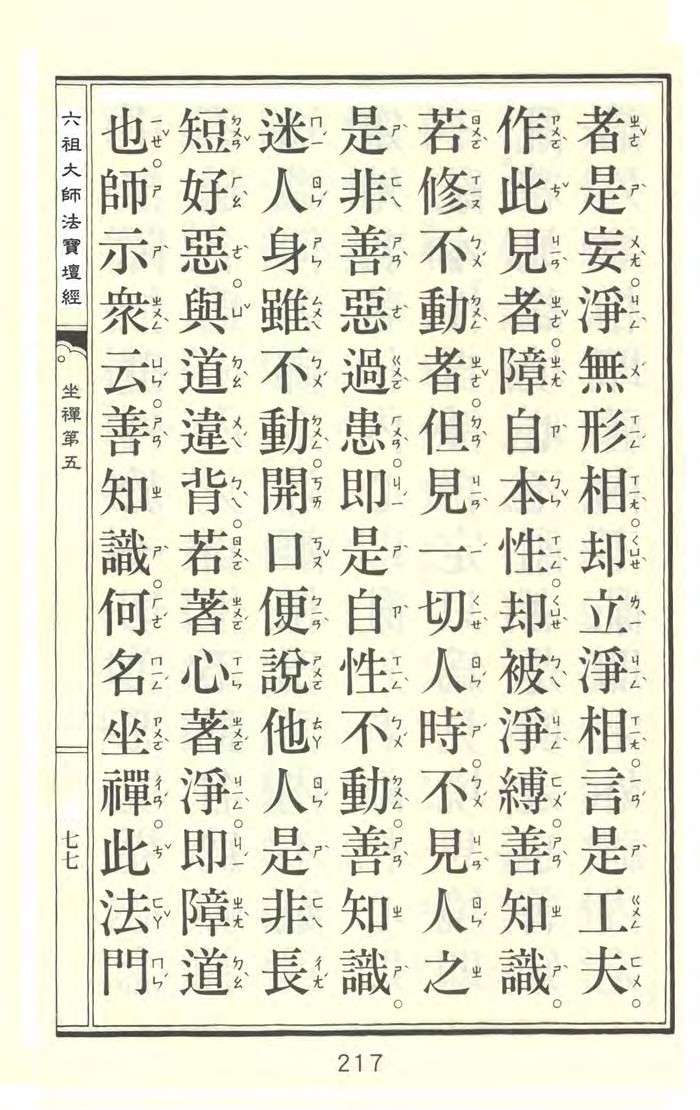 者是妄。淨無形相。却立淨相。言是工夫。
作此見者。障自本性。却被淨縛。善知識。
若修不動者。但見一切人時。不見人之
是非善惡過患。即是自性不動。善知識。
迷人身雖不動。開口便說他人是非長
短好惡。與道違背。若著心著淨。即障道
也。師示衆云。善知識。何名坐禪。此法門
六祖大師法寶壇經
坐禪第五
七七
217